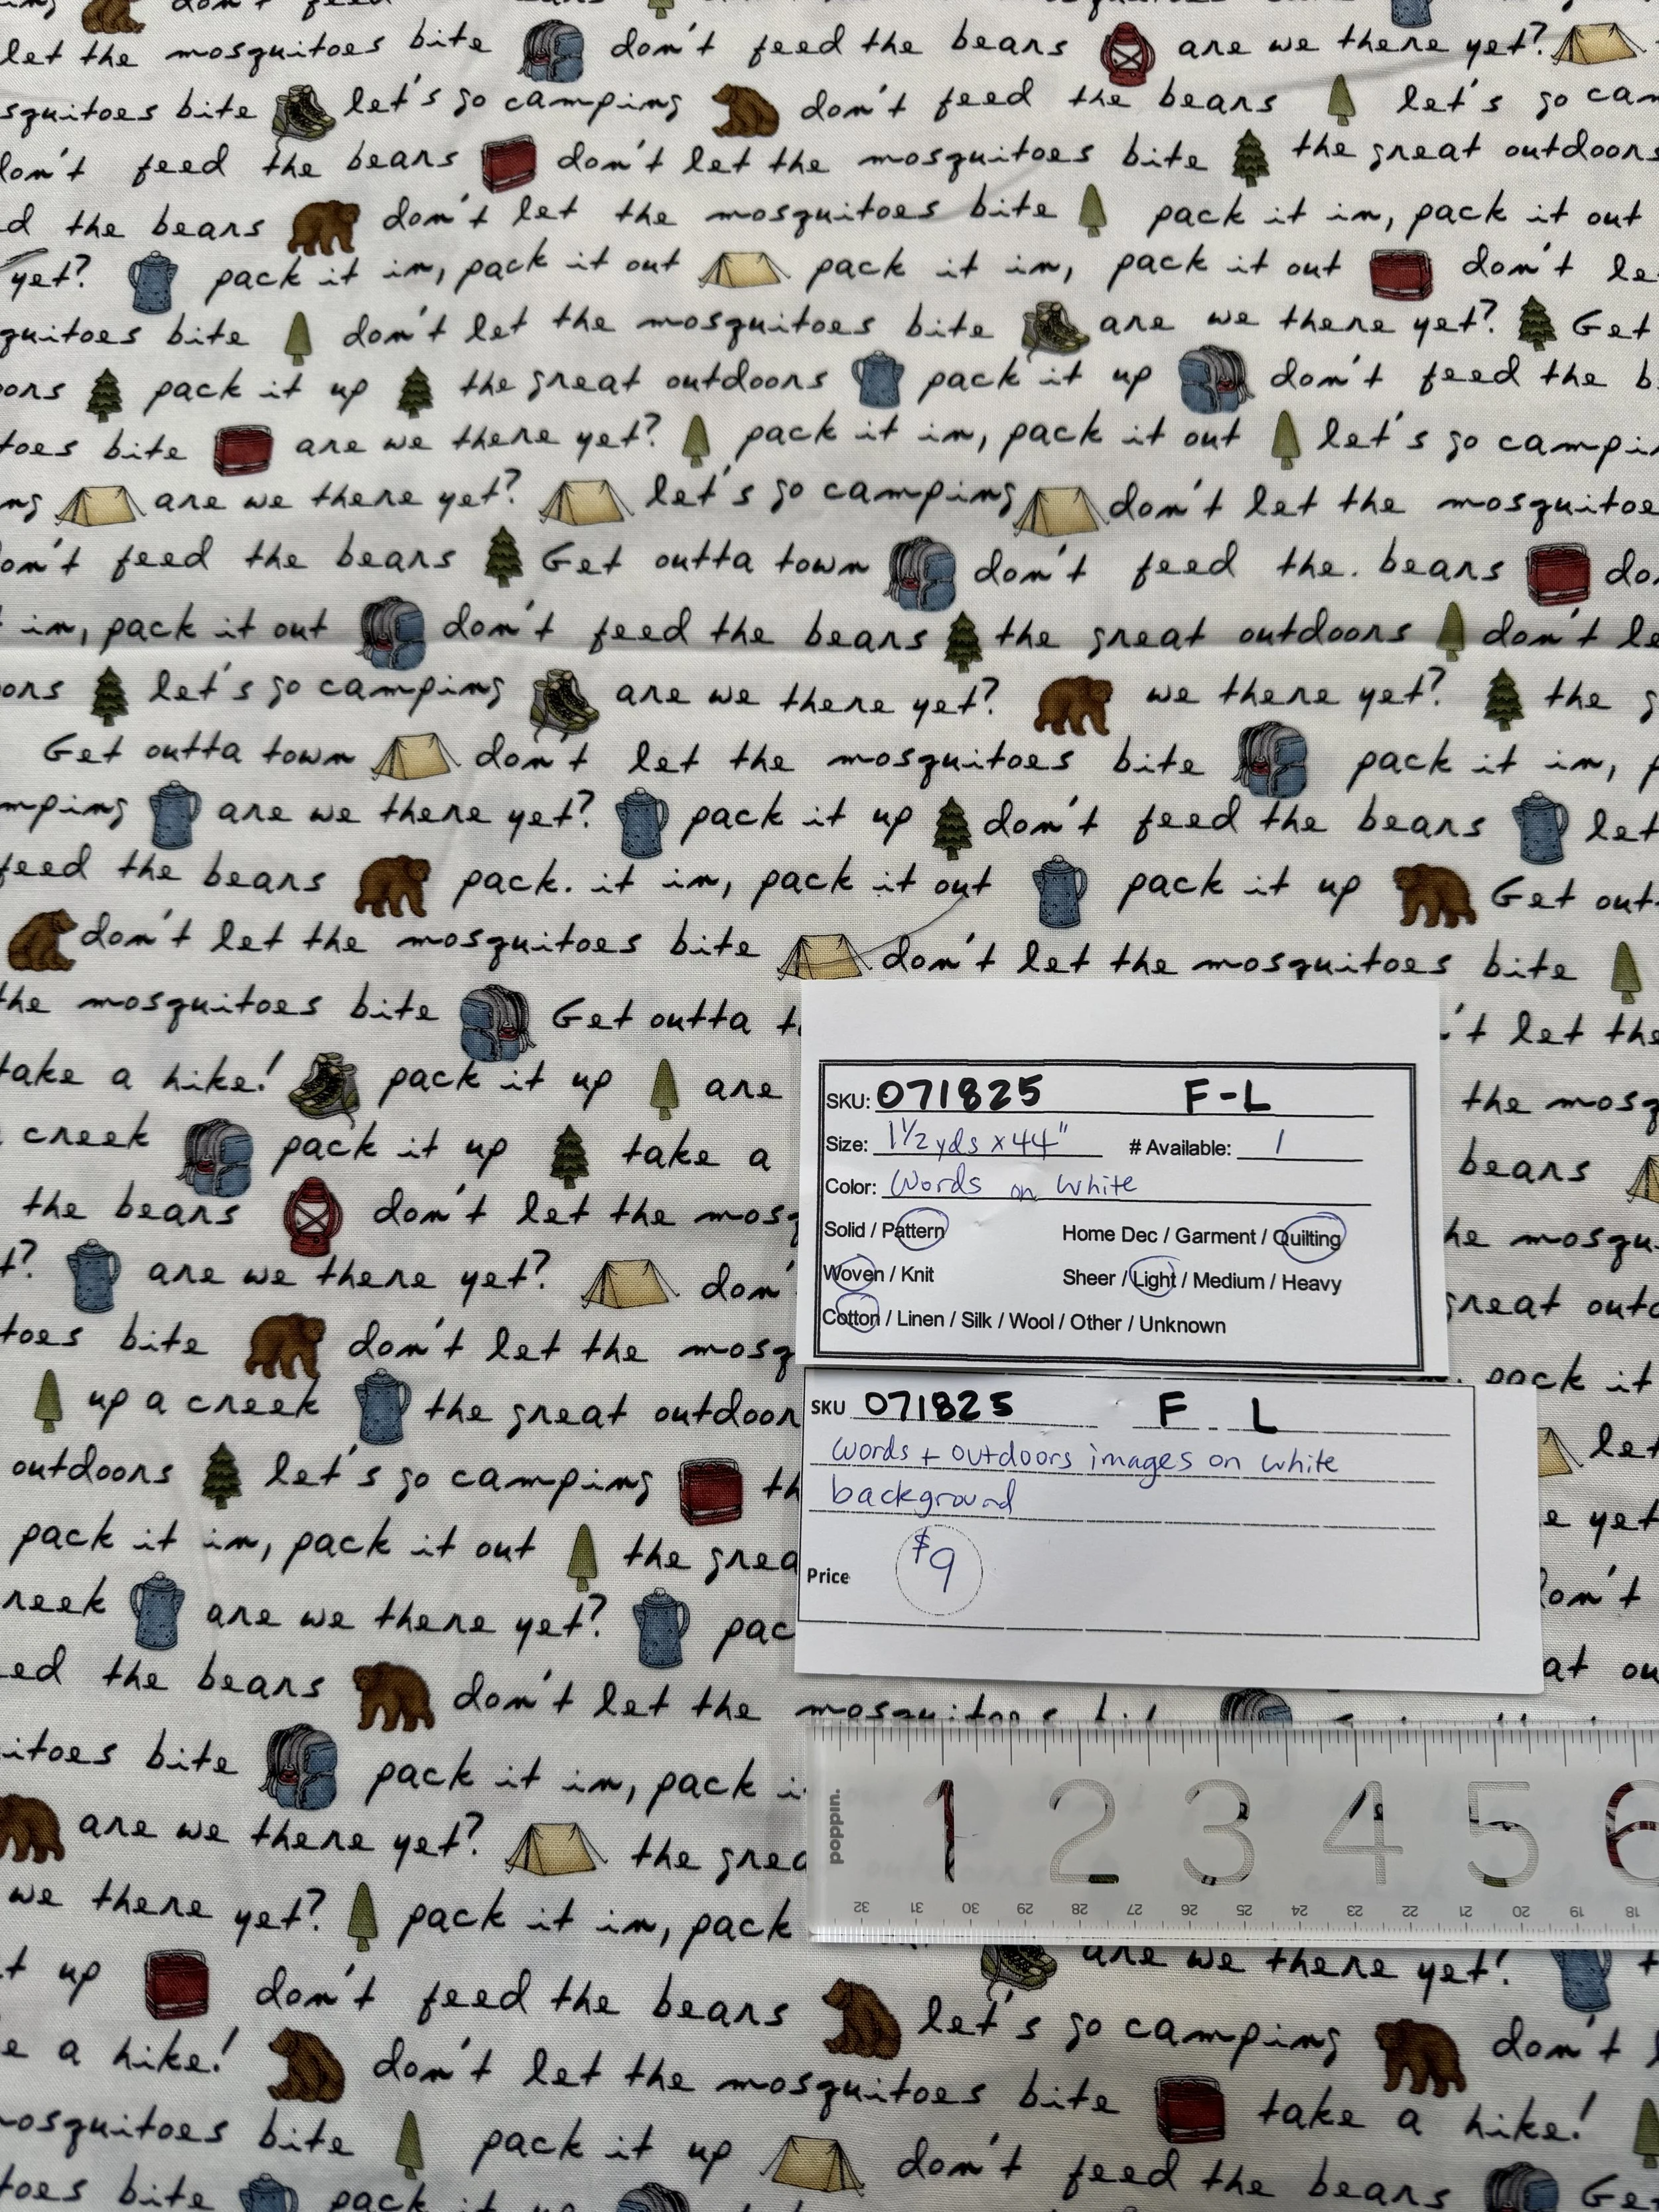 let the mosquitoes bite don't feed the bears are we there yet?
bite let's go camping don't feed the bears let's go
feed the bears don't let the mosquitoes bite the great outdoors
the bears don't let the mosquitoes bite pack it in, pack it out
yet? pack it in, pack it out pack it in, pack it out don't
bite don't let the mosquitoes bite are we there yet? Get
pack it up the great outdoors pack it up don't feed the
bite are we there yet? pack it in, pack it out let's go
are we there yet? let's go camping don't let the
feed the bears Get outta town don't feed the. bears
in, pack it out don't feed the bears the great outdoors don't
let's go camping are we there yet? we there yet? the
Get outta town don't let the mosquitoes bite pack it in,
are we there yet? pack it up don't feed the bears let
feed the bears pack. it in, pack it out pack it up Get
don't let the mosquitoes bite don't let the mosquitoes bite
the mosquitoes bite Get outta let the
take a hike! pack it up are the
creek pack it up take a bears
the bears don't let the
are we there yet? great
bite don't let the pack it
up a creek the great let
outdoors let's go camping
pack it in, pack it out the yet
are we there yet?
the bears don't let the
bite pack it in, pack
are we there yet? the
we there yet? pack it in, pack
are we there yet?
up don't feed the bears let's go camping don't
a hike! don't let the mosquitoes bite take a hike!
bite pack it up don't feed the bears
bite pack it up
SKU: 071825 F-L
Size: 1 1/2 yds x 44" # Available: 1
Color: Words on white
Solid / Pattern Home Dec / Garment / Quilting
Woven / Knit Sheer / Light / Medium / Heavy
Cotton / Linen / Silk / Wool / Other / Unknown
SKU 071825 F L
words + outdoors images on white
background
Price $9
poppin.
1 2 3 4 5 6
32 31 30 29 28 27 26 25 24 23 22 21 20 19 18